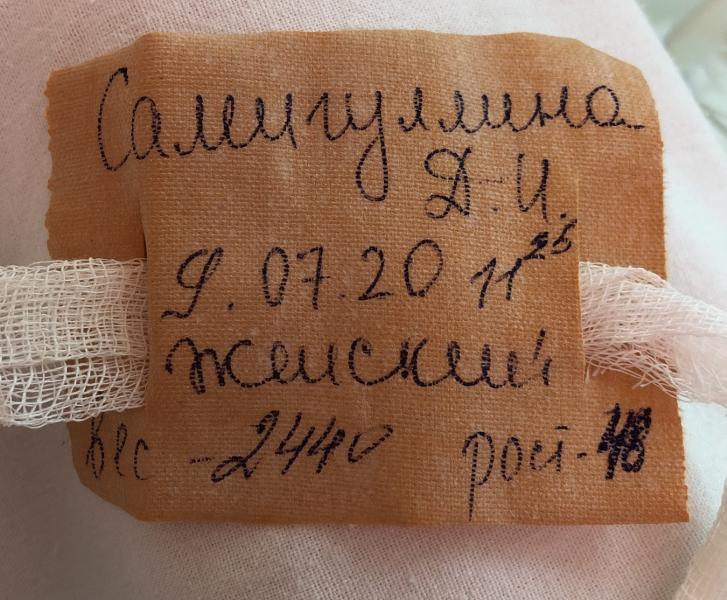 Самигуллина
Д.И.
9.07.20 11 25
женский
вес - 2440 рост - 48